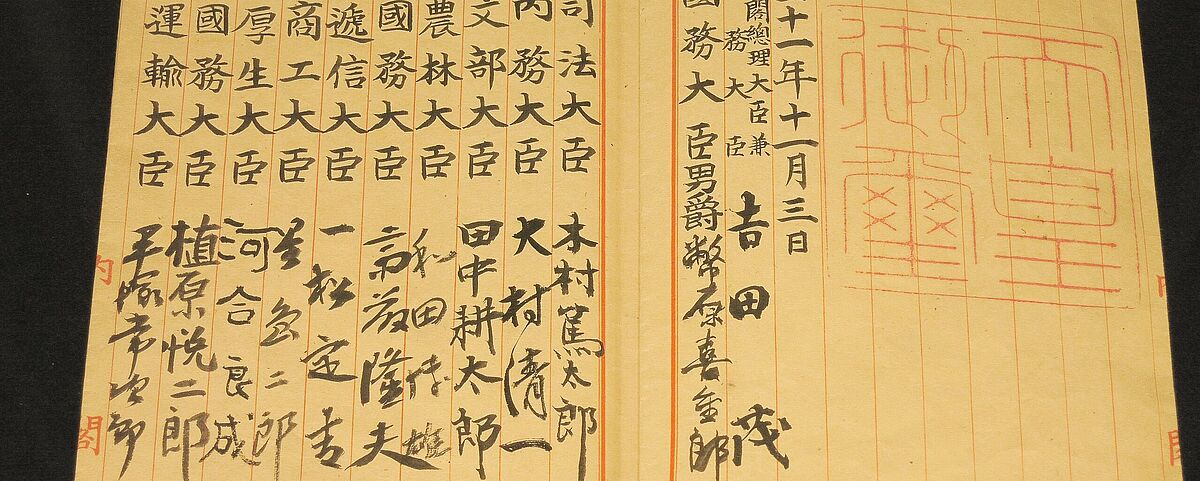 天皇
御璽
十一年十一月三日
閣總理大臣兼
務大臣
吉田茂
國務大臣男爵幣原喜重郎
司法大臣 木村篤太郎
内務大臣 大村清一
文部大臣 田中耕太郎
農林大臣 和田博雄
國務大臣 斎藤隆夫
遞信大臣 一松定吉
商工大臣 星島二郎
厚生大臣 河合良成
國務大臣 植原悦二郎
運輸大臣 平塚常次郎
内閣